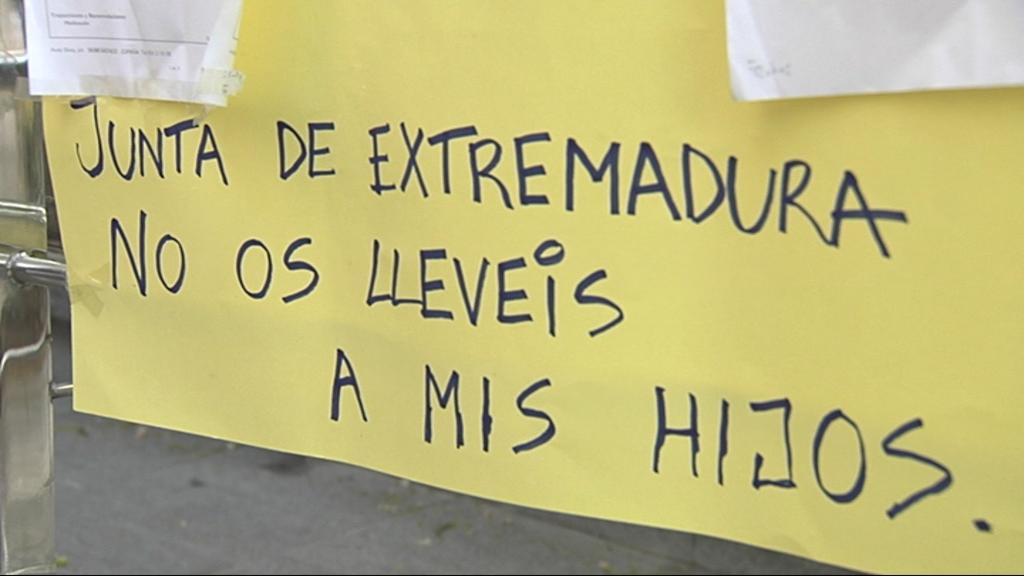 JUNTA DE EXTREMADURA
NO OS LLEVEiS
A MIS HIJOS.